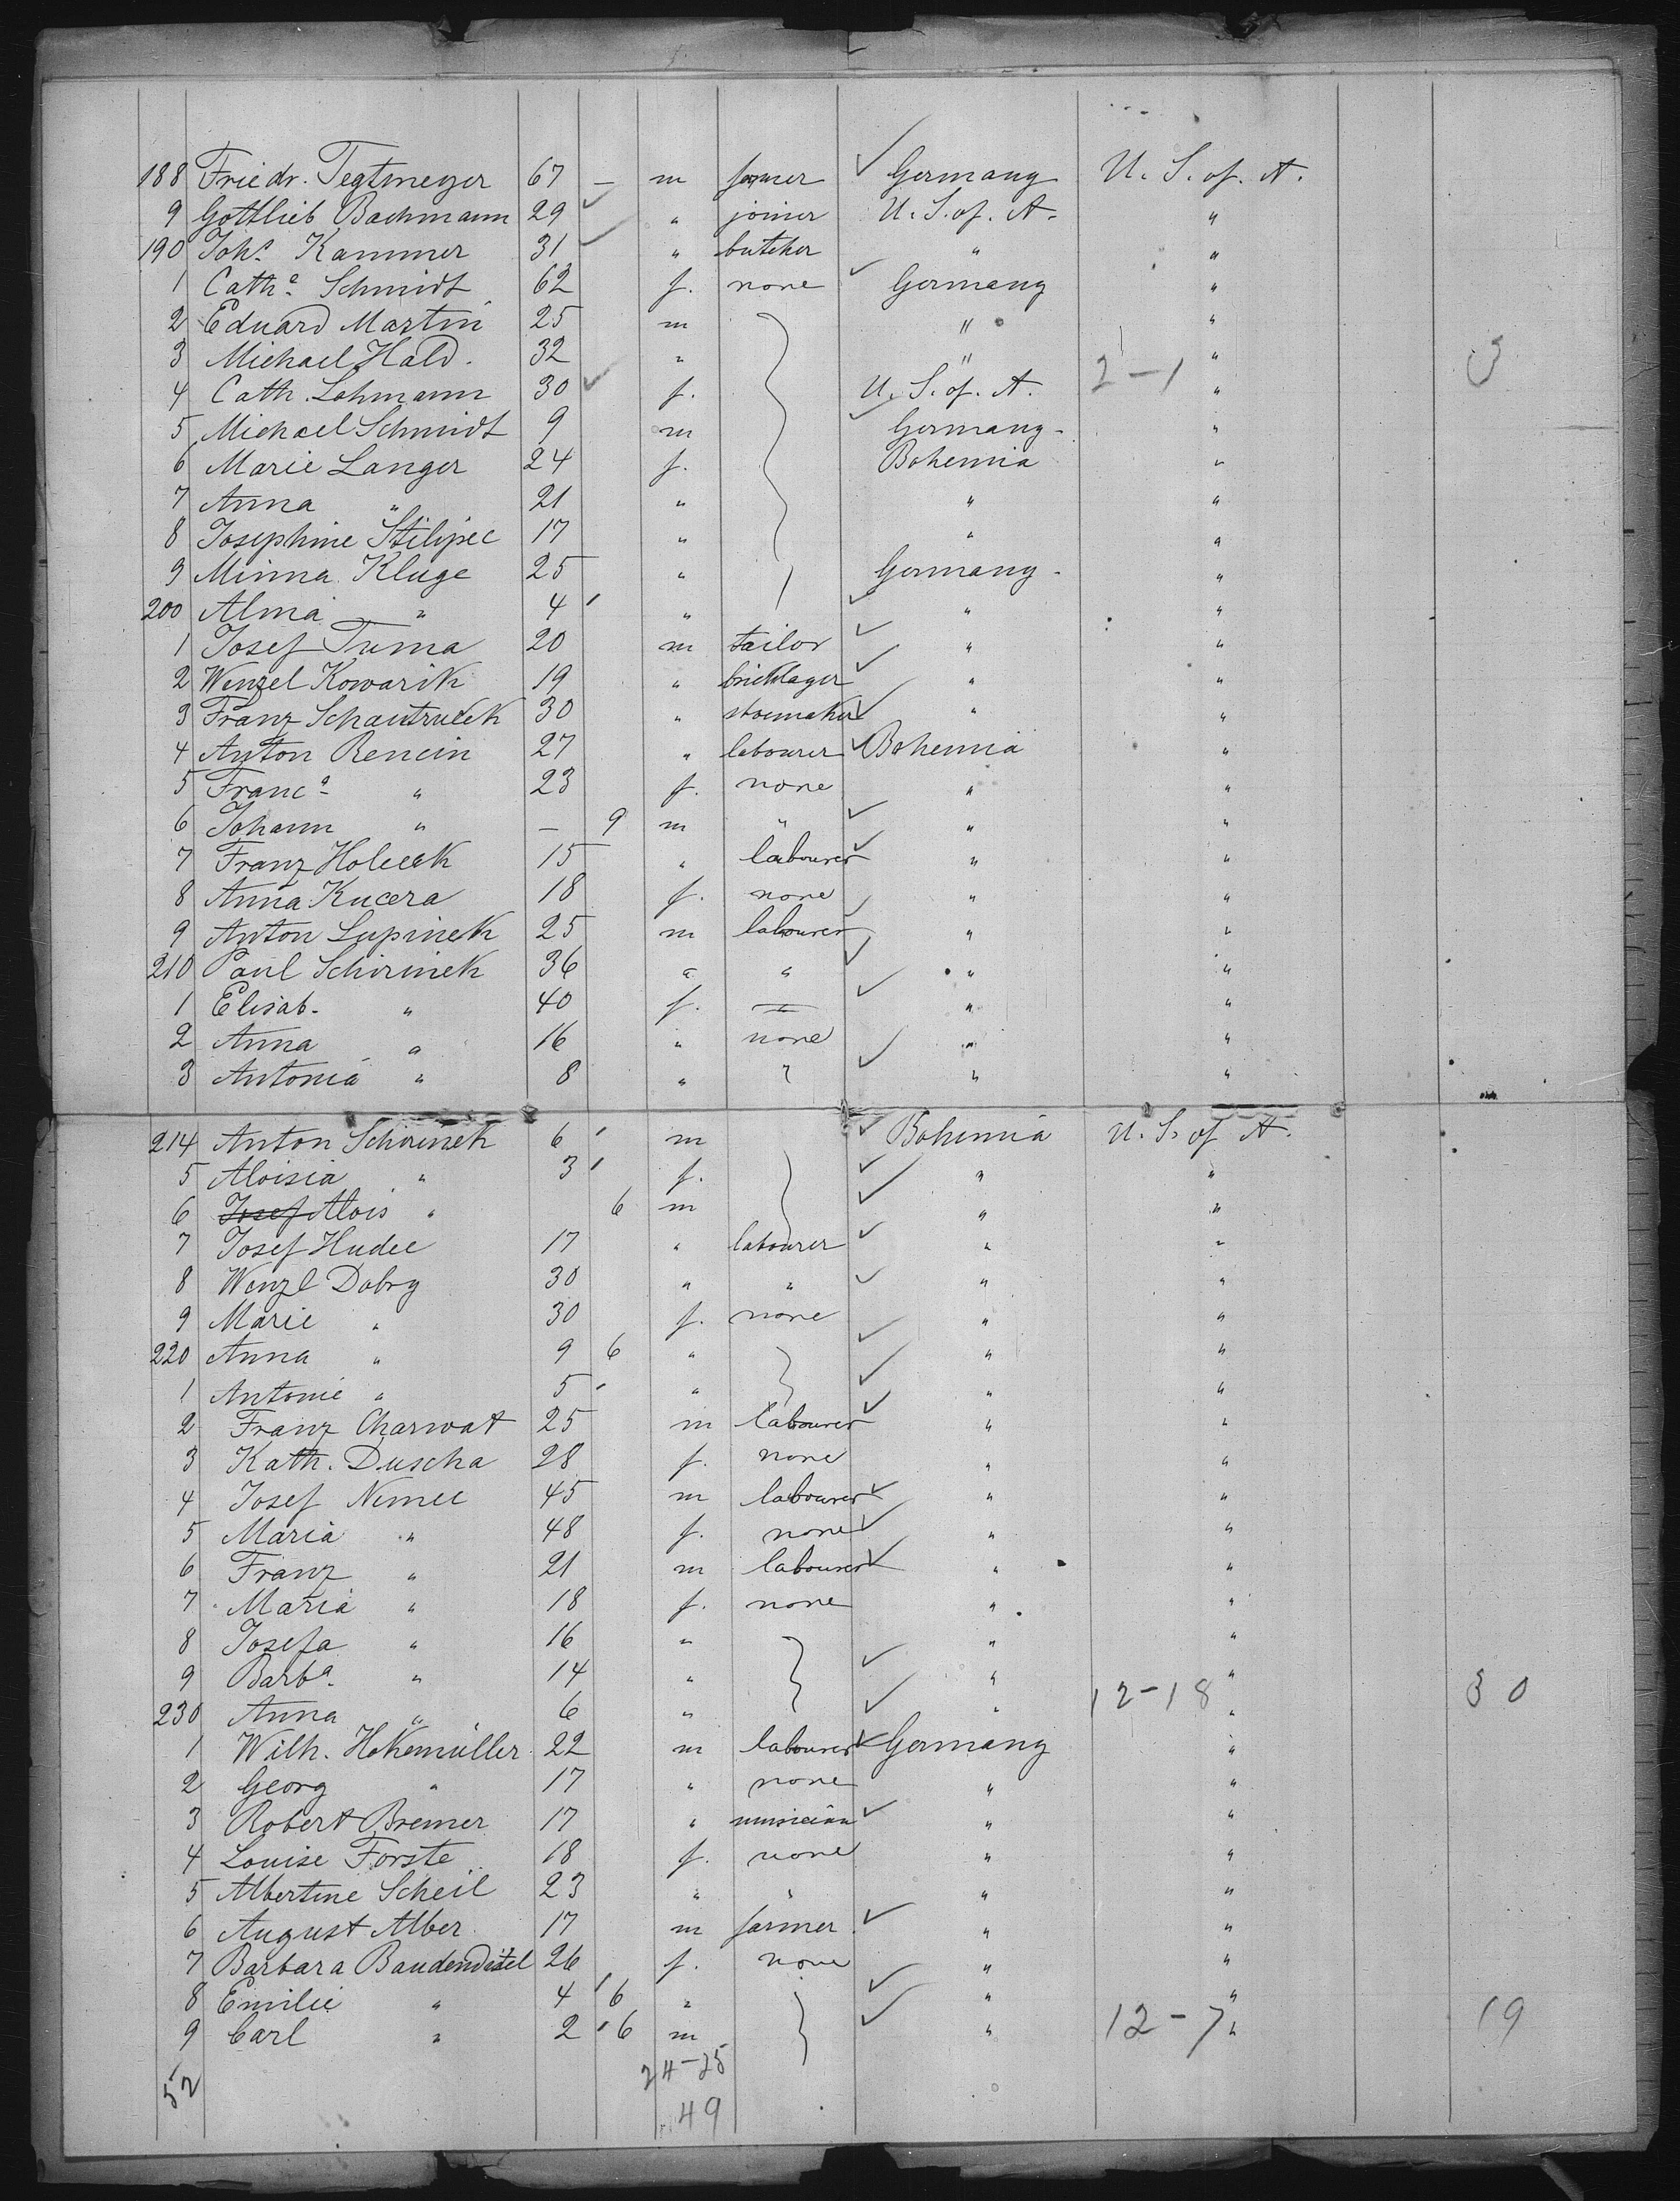 188 Friedr. Tegtmeyer 67 — m farmer Germany U. S. of. A.
9 Gottlieb Bachmann 29 " joiner U. S. of. A. "
190 Joh.s Kammer 31 " butcher " "
1 Cath.a Schmidt 62 f. none Germany "
2 Eduard Martin 25 m " "
3 Michael Hald. 32 " " "
4 Cath. Lohmann 30 f. U. S. of. A. 2-1 " 3
5 Michael Schmidt 9 m Germany "
6 Marie Langer 24 f. Bohemia "
7 Anna " 21 " " "
8 Josephine Stilipec 17 " " "
9 Minna Kluge 25 " Germany "
200 Alma " 4 " " "
1 Josef Tuma 20 m tailor " "
2 Wenzel Kowarik 19 " bricklager " "
3 Franz 30 " shoemaker " "
4 Anton Rencin 27 " labourer Bohemia "
5 Franc.a " 23 f. none " "
6 Johann " — 9 m " " "
7 Franz Holecek 15 " labourer " "
8 Anna Kucera 18 f. none " "
9 Anton Lupinek 25 m labourer " "
210 Paul Schirinek 36 " " " "
1 Elisab. " 40 f. — " "
2 Anna " 16 " none " "
3 Antonia " 8 " " " "
214 Anton Schirinek 6 m Bohemia U. S. of A.
5 Aloisia " 3 f. " "
6 Josef Alois " 6 m " "
7 Josef Hudec 17 " labourer " "
8 Wenzl Dobry 30 " " " "
9 Marie " 30 f. none " "
220 Anna " 9 6 " " "
1 Antonie " 5 " " "
2 Franz Charwat 25 m labourer " "
3 Kath. Duscha 28 f. none " "
4 Josef Nemec 45 m labourer " "
5 Maria " 48 f. none " "
6 Franz " 21 m labourer " "
7 Maria " 18 f. none " "
8 Josefa " 16 " " "
9 Barb.a " 14 " " "
230 Anna " 6 " " 12-18 " 30
1 Wilh. Hokemüller 22 m labourer Germany "
2 Georg " 17 " none " "
3 Robert Bremer 17 " musician " "
4 Louise Forste 18 f. none " "
5 Albertine Scheil 23 " " " "
6 August Alber 17 m farmer " "
7 Barbara Baudendistel 26 f. none " "
8 Emilie " 4 6 " " "
9 Carl " 2 6 m " 12-7 " 19
52 24-25
49